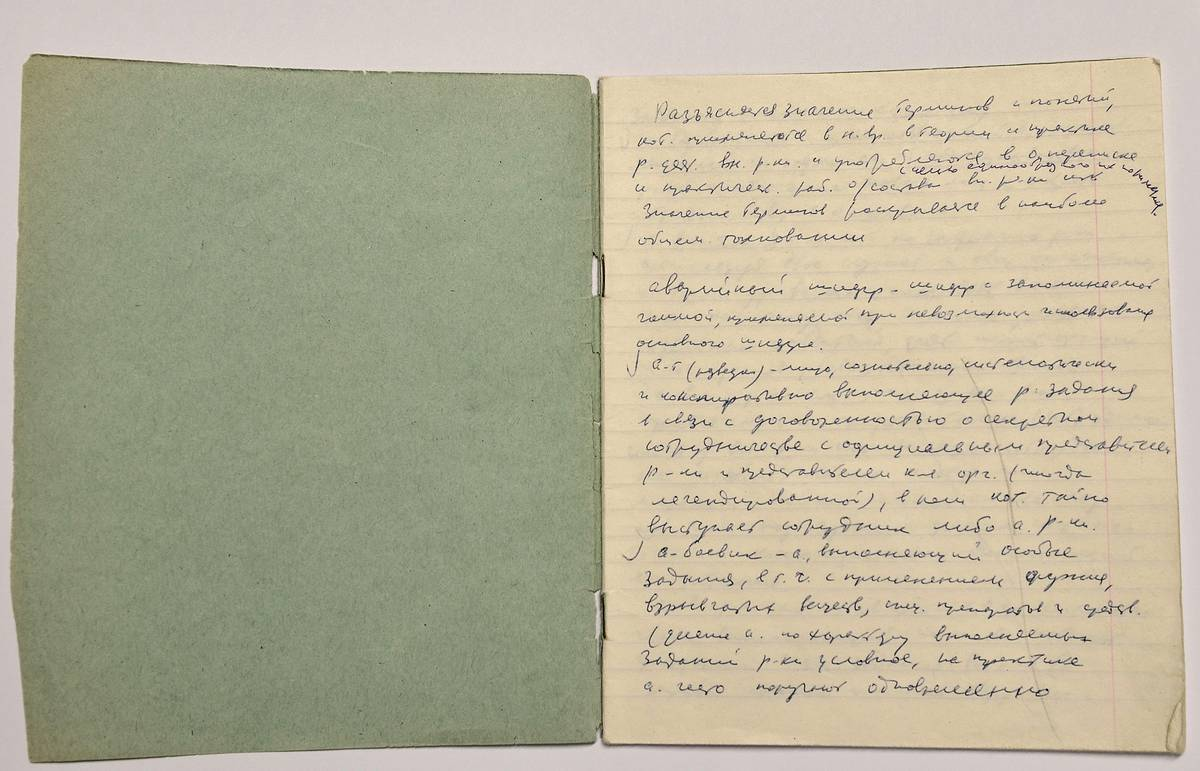 Разъясняется значение терминов и понятий,
кот. применяются в н. вр. в теории и практике
р. деят. вн. р-ки. и употребляются в оп. переписке
с целью единообразного их понимания.
и практическ. раб. о/состава вн. р-ки
Значение терминов раскрывается в наиболее
общем толковании
аварийный шифр - шифр с запоминаемой
гаммой, применяемой при невозможности использования
основного шифра.
а-т (разведки) - лицо, сознательно, систематически
и конспиративно выполняющее р. задания
в связи с договоренностью о секретном
сотрудничестве с официальным представителем
р-ки и представителем к-л. орг. (иногда
легендированной), в кот. тайно
выступает сотрудник либо а. р-ки.
а-боевик - а, выполняющий особые
задания, в т. ч. с применением оружия,
взрывчатых веществ, спец. препаратов и средств.
(деление а. по характеру выполняемых
заданий р-ки условное, на практике
а. часто поручают одновременно